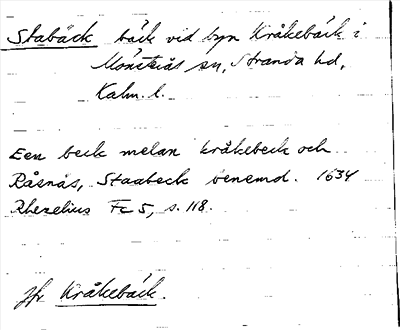 Stabäck bäck vid byn Kråkebäck i
Mönsterås sn, Stranda hd,
Kalm. l.
Een beck melan kråkebeck och
Råsnäs, Staabeck benemd. 1634
Rhezelius Fc 5, s. 118.
Jfr Kråkebäck.